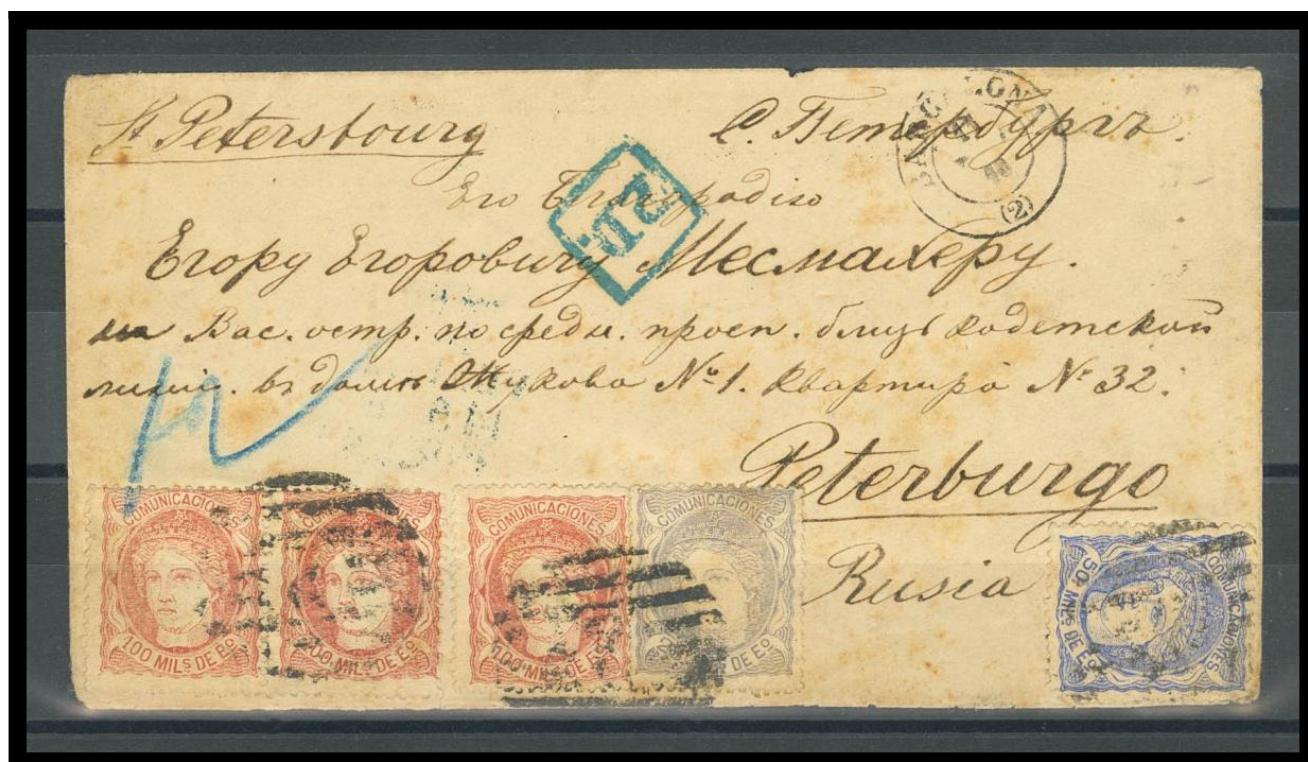 St Petersbourg
С. Петербургъ.
BARCELONA
(2)
P.D.
Его Благородію
Егору Егоровичу Месмахеру.
на Вас. остр. по средн. просп. близъ кадетской
линіи. въ домѣ Жукова № 1. квартира № 32.
12
Peterburgo
Rusia
COMUNICACIONES
100 MILS DE EO
COMUNICACIONES
100 MILS DE EO
COMUNICACIONES
100 MILS DE EO
COMUNICACIONES
DE EO
COMUNICACIONES
50 MILS DE EO